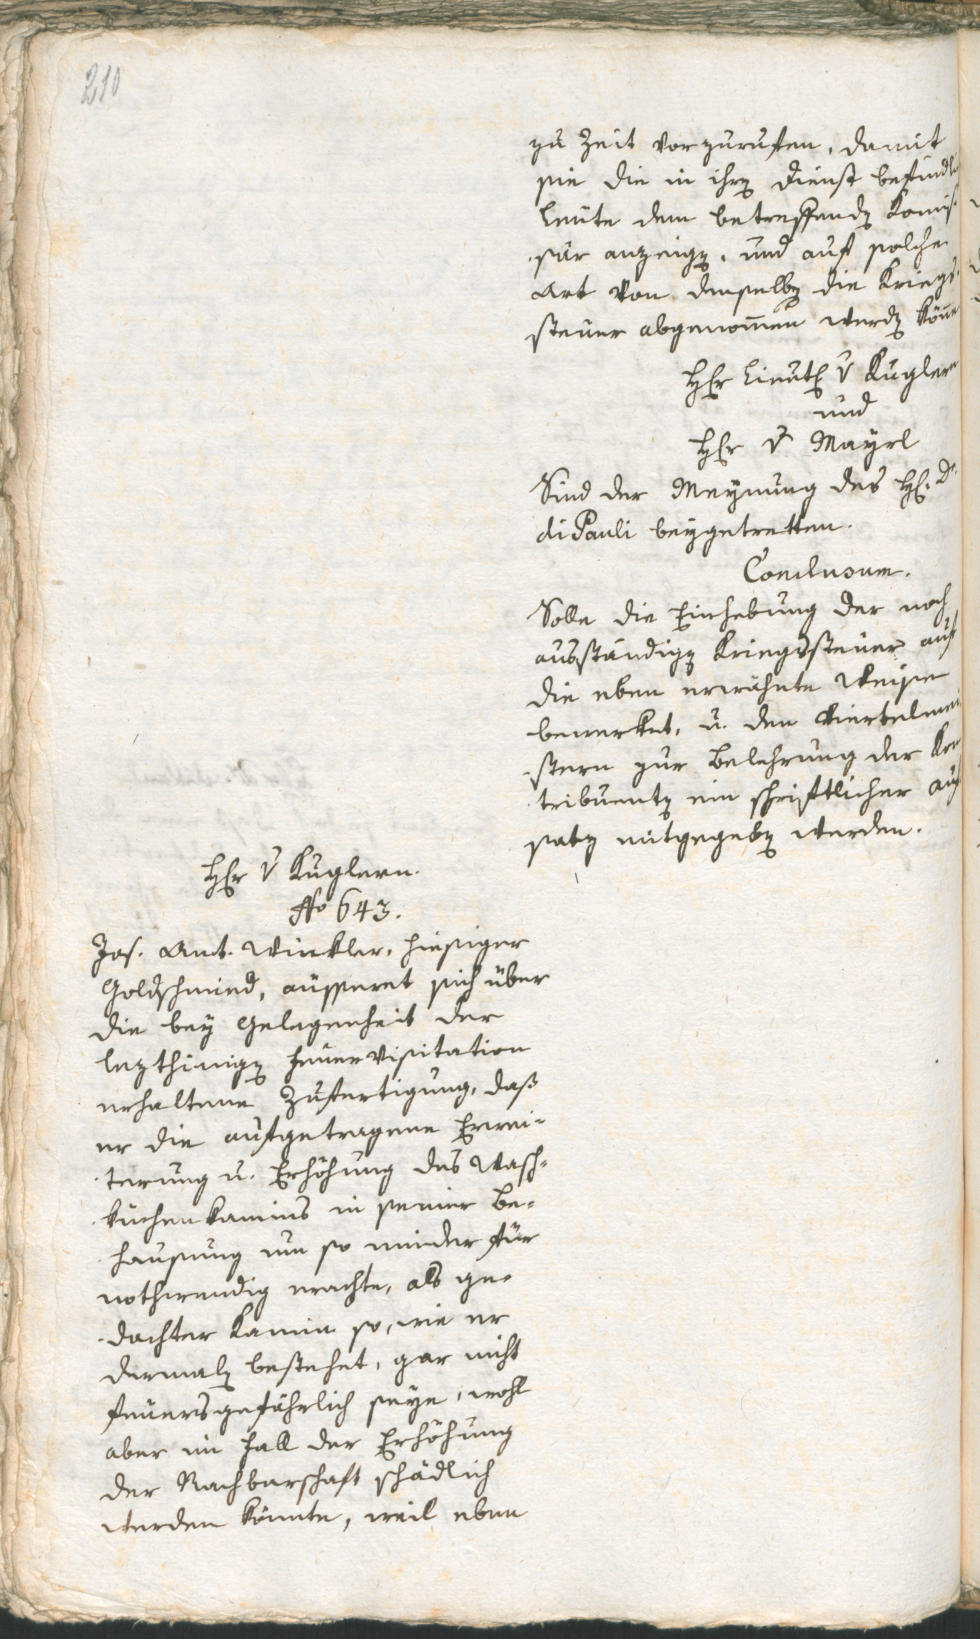 210
zu Zeit vorzurufen, damit
sie die in ihrẽ Dienst befindl
Leute dem betreffendẽ Komis
sär anzeigẽ, und auf solche
Art von denselbẽ die Kriegs
steuer abgenom̃en werdẽ kön̄e
Hẽr Lieutẽ v Kuglern
und
Hẽr v. Mayrl
Sind der Meynung des H. Dr.
di Pauli beygetretten.
Conclusum.
Solle die Einhebung der noch
ausständigẽ Kriegssteuer auf
die eben erwähnte Weise
bewerket, u. den Viertelmei
stern zur Belehrung der Kon
tribuentẽ ein schriftlicher Auf
satz mitgegebẽ werden.
Hẽr v Kuglern.
No 643.
Jos. Ant. Winkler, hiesiger
Goldschmied, äusseret sich über
die bey Gelegenheit der
lezthinigẽ Feuervisitation
erhaltene Zufertigung, daß
er die aufgetragene Erwei-
terung u. Erhöhung des Wasch-
kuchenkamins in seiner Be-
hausung um so minder für
nothwendig erachte, als ge-
dachter Kamin so, wie er
dermalẽ bestehet, gar nicht
feuersgefährlich seye, wohl
aber im Fall der Erhöhung
der Nachbarschaft schädlich
werden könnte, weil eben